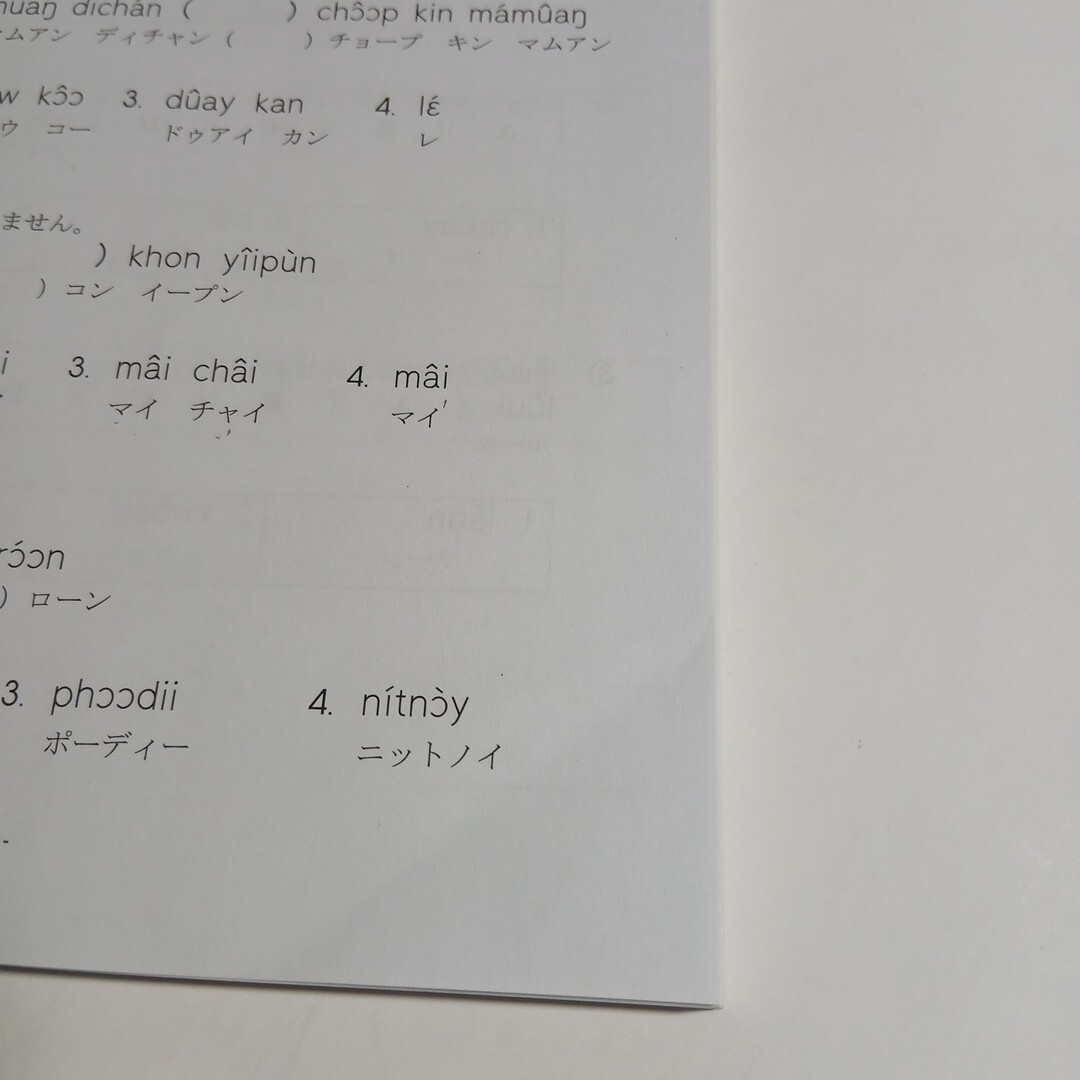 dichán (          ) chɔ̂ɔp kin mámûaŋ
ムアン ディチャン (          ) チョープ キン マムアン
kɔ̂ɔ 3. dûay kan 4. lɛ́
コー ドゥアイ カン レ
ません。
) khon yîipùn
) コン イープン
3. mâi châi 4. mâi
マイ チャイ マイ
rɔ́ɔn
) ローン
3. phɔɔdii 4. nítnɔ̀y
ポーディー ニットノイ